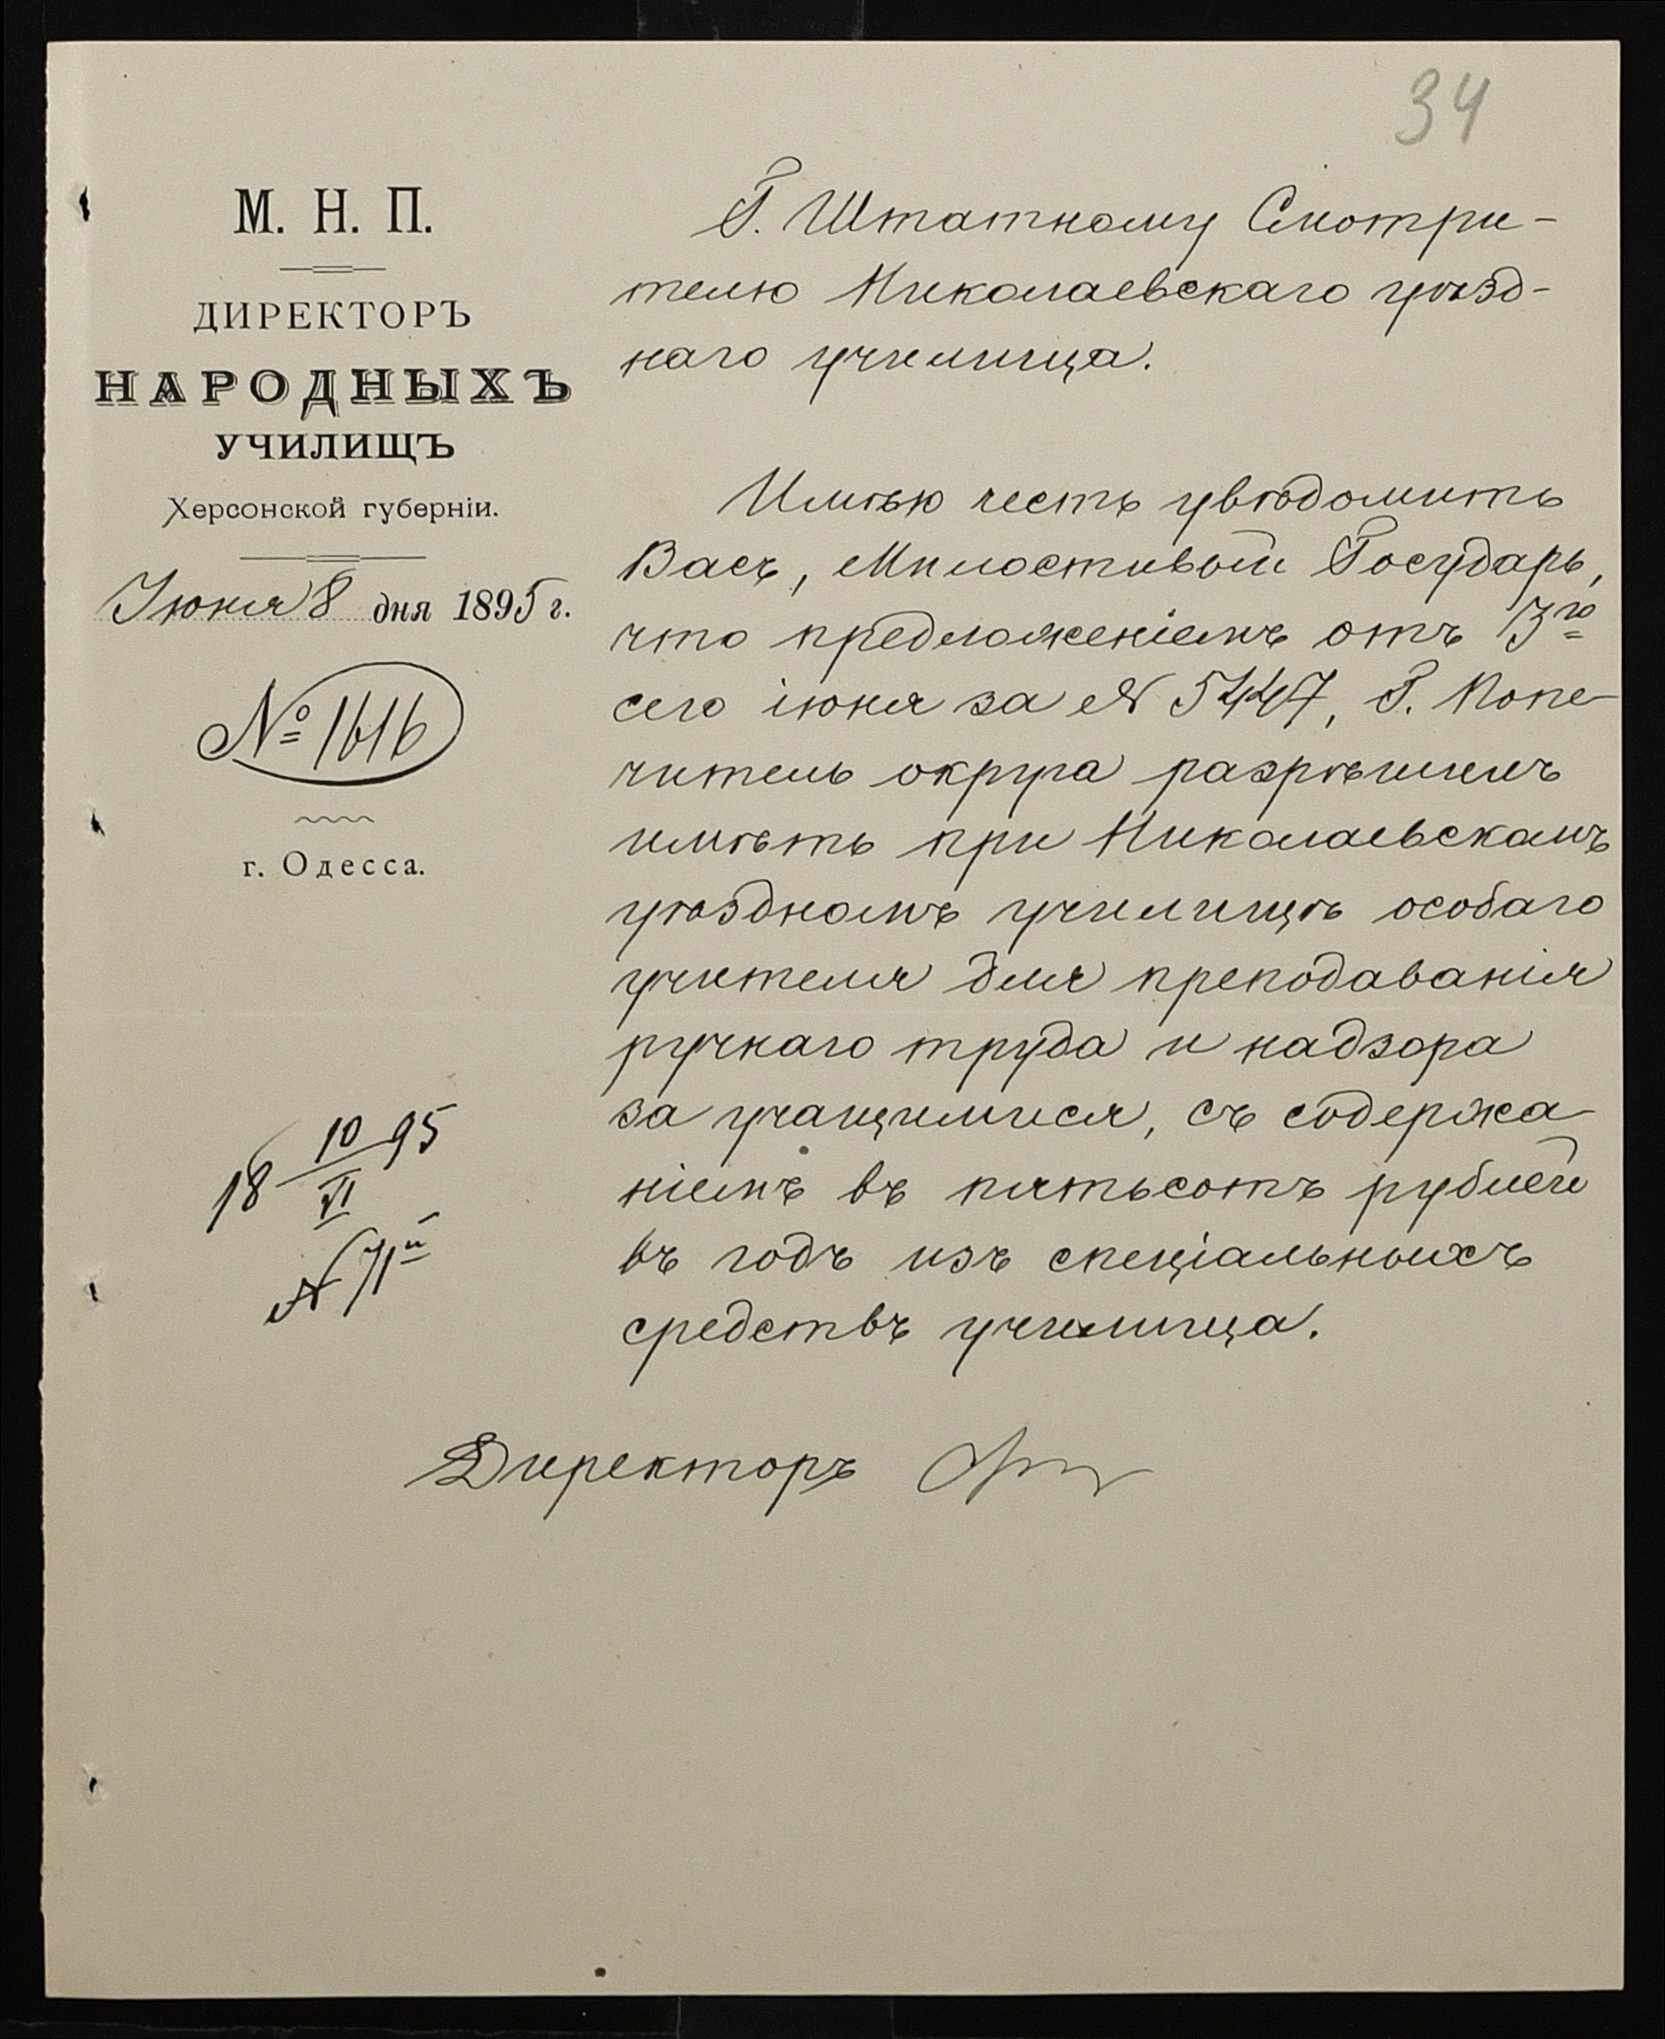 34
М. Н. П.
ДИРЕКТОРЪ
НАРОДНЫХЪ
УЧИЛИЩЪ
Херсонской губерніи.
Іюня 8 дня 1895 г.
№ 1616
г. Одесса.
18 10/VI 95
№ 71й
Г. Штатному Смотри-
телю Николаевскаго уѣзд-
наго училища.
Имѣю честь увѣдомить
Васъ, Милостивый Государь,
что предложеніемъ отъ 3го
сего іюня за № 5447, Г. Попе-
читель округа разрѣшилъ
имѣть при Николаевскомъ
уѣздномъ училищѣ особаго
учителя для преподаванія
ручнаго труда и надзора
за учащимися, съ содержа-
ніемъ въ пятьсотъ рублей
въ годъ изъ спеціальныхъ
средствъ училища.
Директоръ